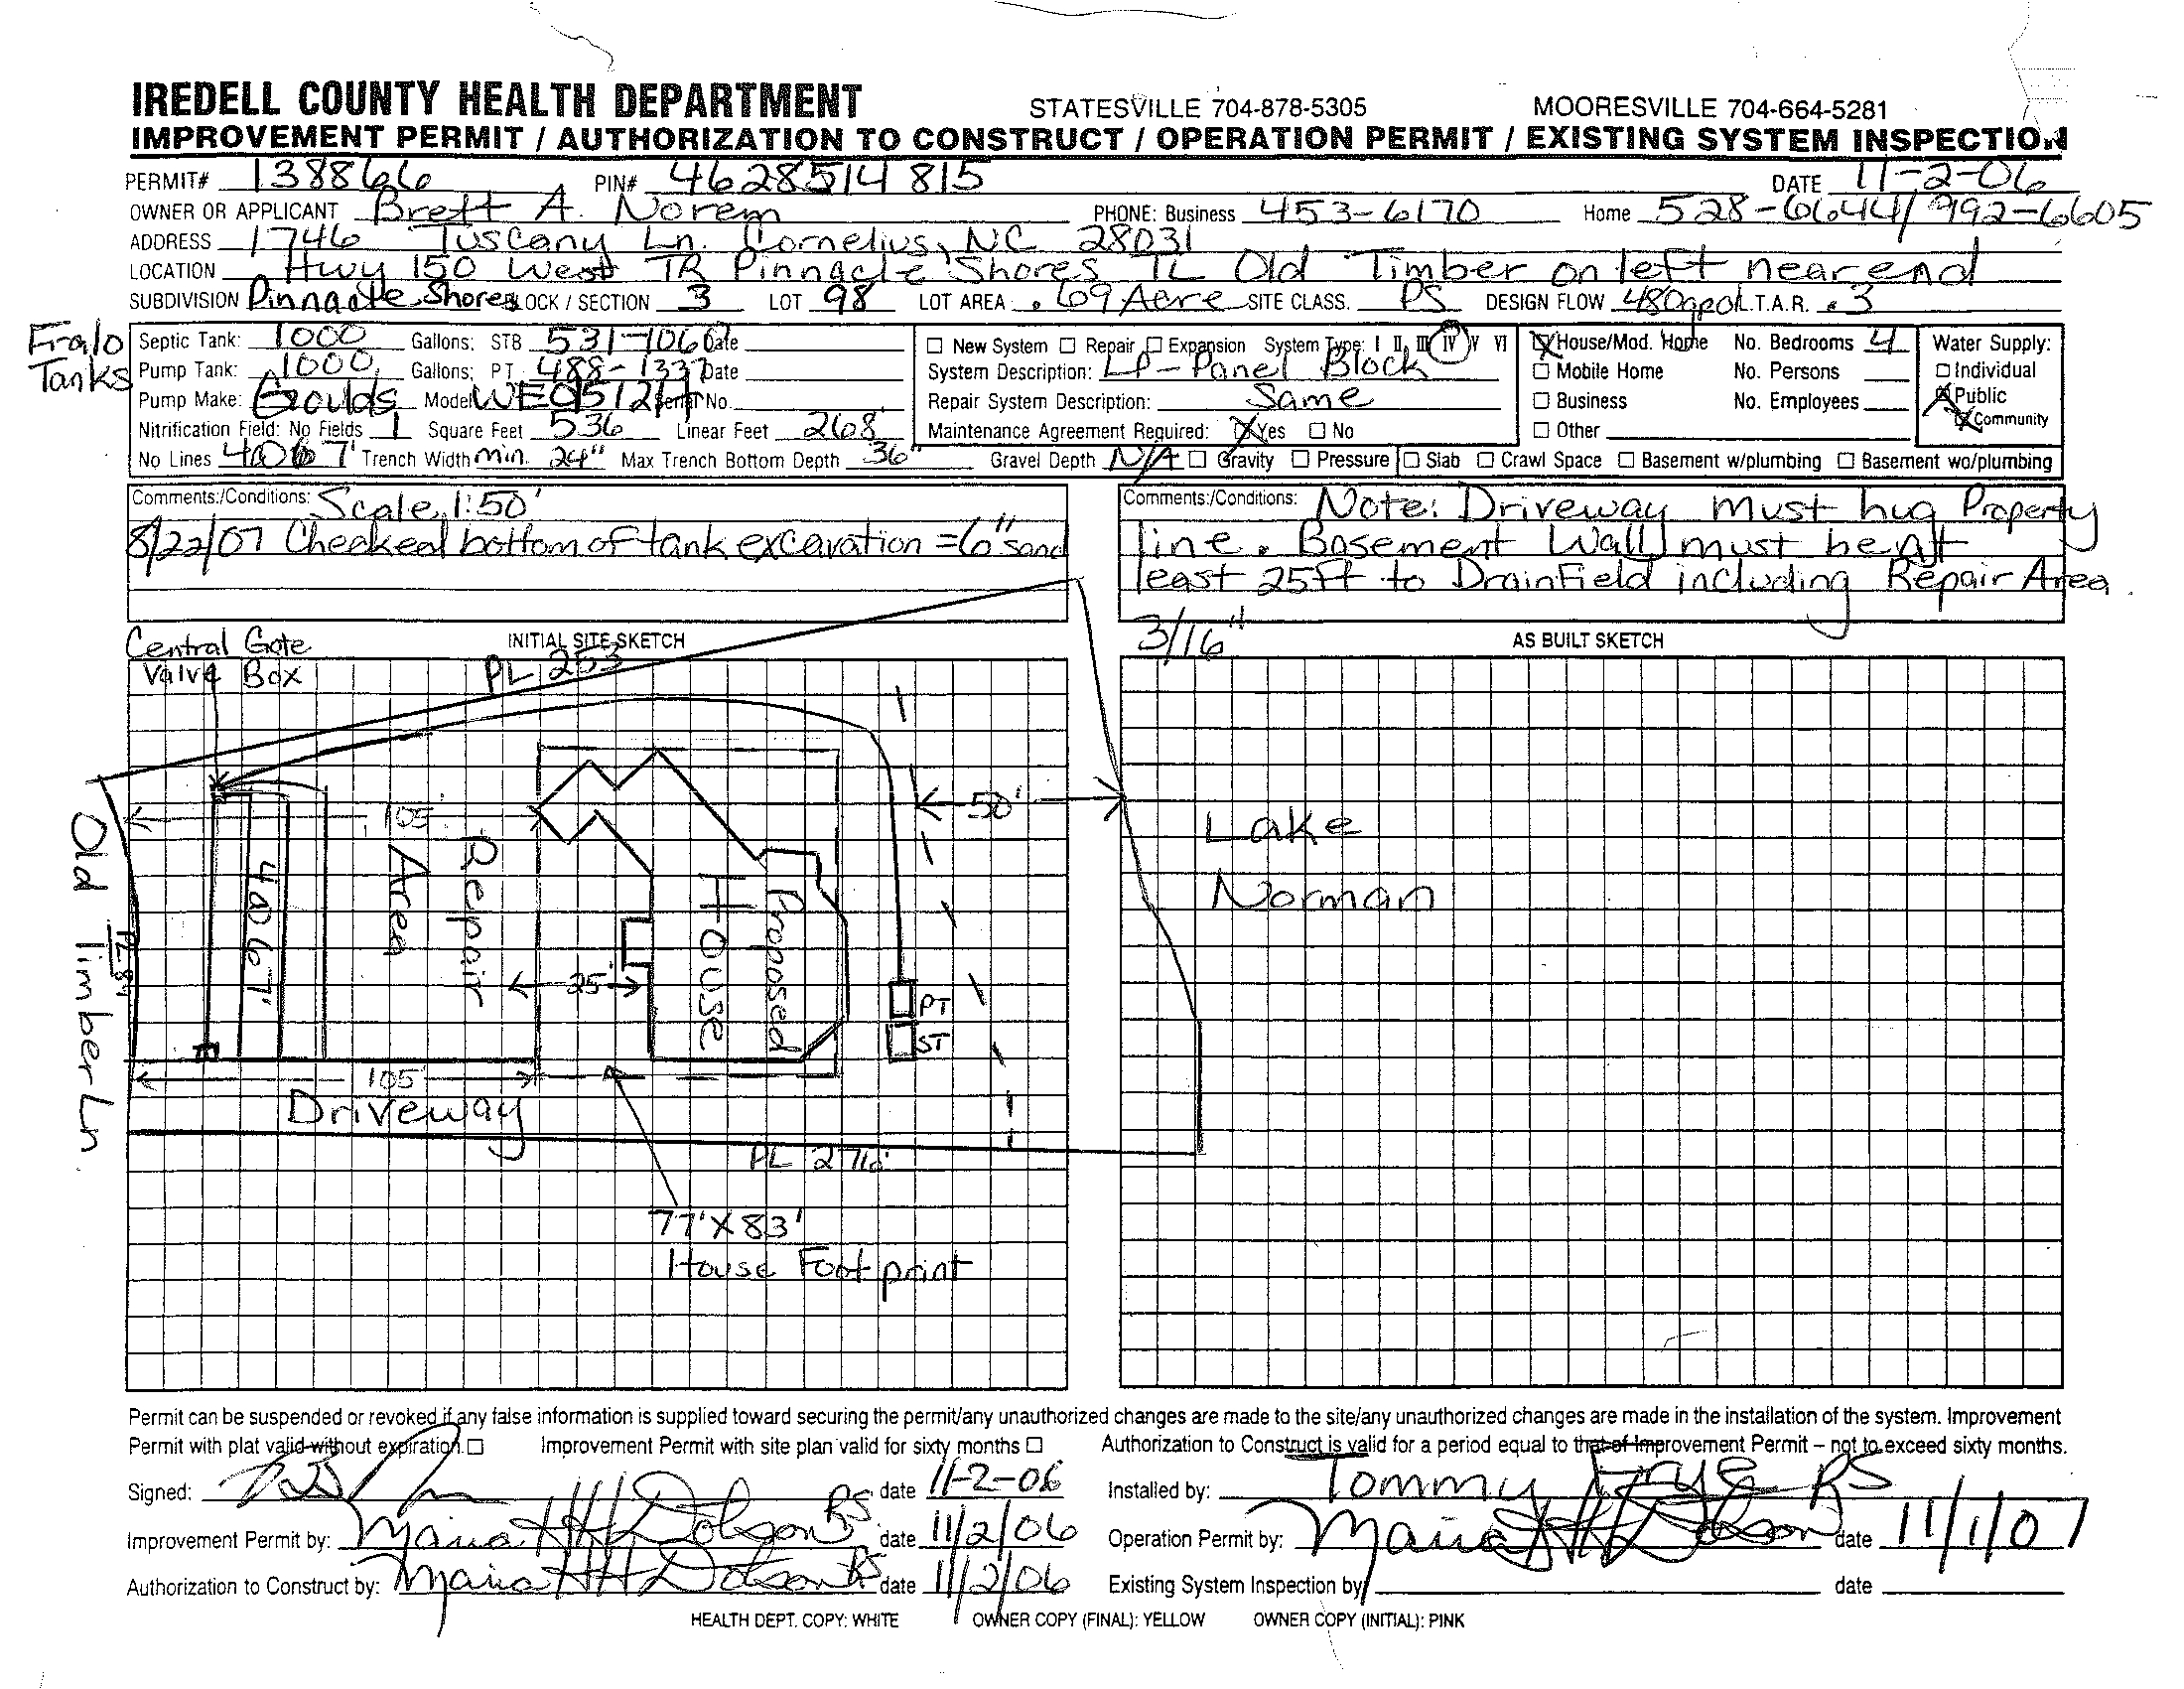 IREDELL COUNTY HEALTH DEPARTMENT STATESVILLE 704-878-5305 MOORESVILLE 704-664-5281
IMPROVEMENT PERMIT / AUTHORIZATION TO CONSTRUCT / OPERATION PERMIT / EXISTING SYSTEM INSPECTION
PERMIT# 138866 PIN# 4628514815 DATE 11-2-06
OWNER OR APPLICANT Brett A. Norem PHONE: Business 453-6170 Home 528-6644/992-6605
ADDRESS 1746 Tuscany Ln. Cornelius, NC 28031
LOCATION Hwy 150 West TR Pinnacle Shores TL Old Timber on left near end
SUBDIVISION Pinnacle Shores BLOCK / SECTION 3 LOT 98 LOT AREA .69 Acre SITE CLASS. PS DESIGN FLOW 480gpd L.T.A.R. .3
Fralo Tanks
Septic Tank: 1000 Gallons: STB 531-706 Date
Pump Tank: 1000 Gallons; PT 488-1337 Date
Pump Make: Goulds Model WE0512H Serial No.
Nitrification Field: No Fields 1 Square Feet 536 Linear Feet 268'
No Lines 4@67' Trench Width min. 24" Max Trench Bottom Depth 36" Gravel Depth N/A Gravity Pressure Slab Crawl Space Basement w/plumbing Basement wo/plumbing
New System Repair Expansion System Type: I II III IV V VI
System Description: LP-Panel Block
Repair System Description: Same
Maintenance Agreement Required: Yes No
House/Mod. Home No. Bedrooms 4
Mobile Home No. Persons
Business No. Employees
Other
Water Supply:
Individual
Public
Community
Comments:/Conditions: Scale 1:50'
8/22/07 Checked bottom of tank excavation = 6" sand
Comments:/Conditions: Note: Driveway must hug Property
line. Basement Wall must be at
least 25ft to Drainfield including Repair Area.
3/16"
Central Gate
Valve Box
INITIAL SITE SKETCH
AS BUILT SKETCH
PL 253
105'
50'
Lake
Norman
4@67'
Repair
Area
Proposed
House
25'
PT
ST
PL 84
Old Timber Ln.
105'
Driveway
PL 276'
77'X83'
House Footprint
Permit can be suspended or revoked if any false information is supplied toward securing the permit/any unauthorized changes are made to the site/any unauthorized changes are made in the installation of the system. Improvement
Permit with plat valid without expiration. Improvement Permit with site plan valid for sixty months Authorization to Construct is valid for a period equal to that of Improvement Permit – not to exceed sixty months.
Signed: date 11-2-06 Installed by: Tommy Frye RS
Improvement Permit by: Maria H Dobson RS date 11/2/06 Operation Permit by: Maria H Dobson date 11/1/07
Authorization to Construct by: Maria H Dobson RS date 11/2/06 Existing System Inspection by date
HEALTH DEPT. COPY: WHITE OWNER COPY (FINAL): YELLOW OWNER COPY (INITIAL): PINK